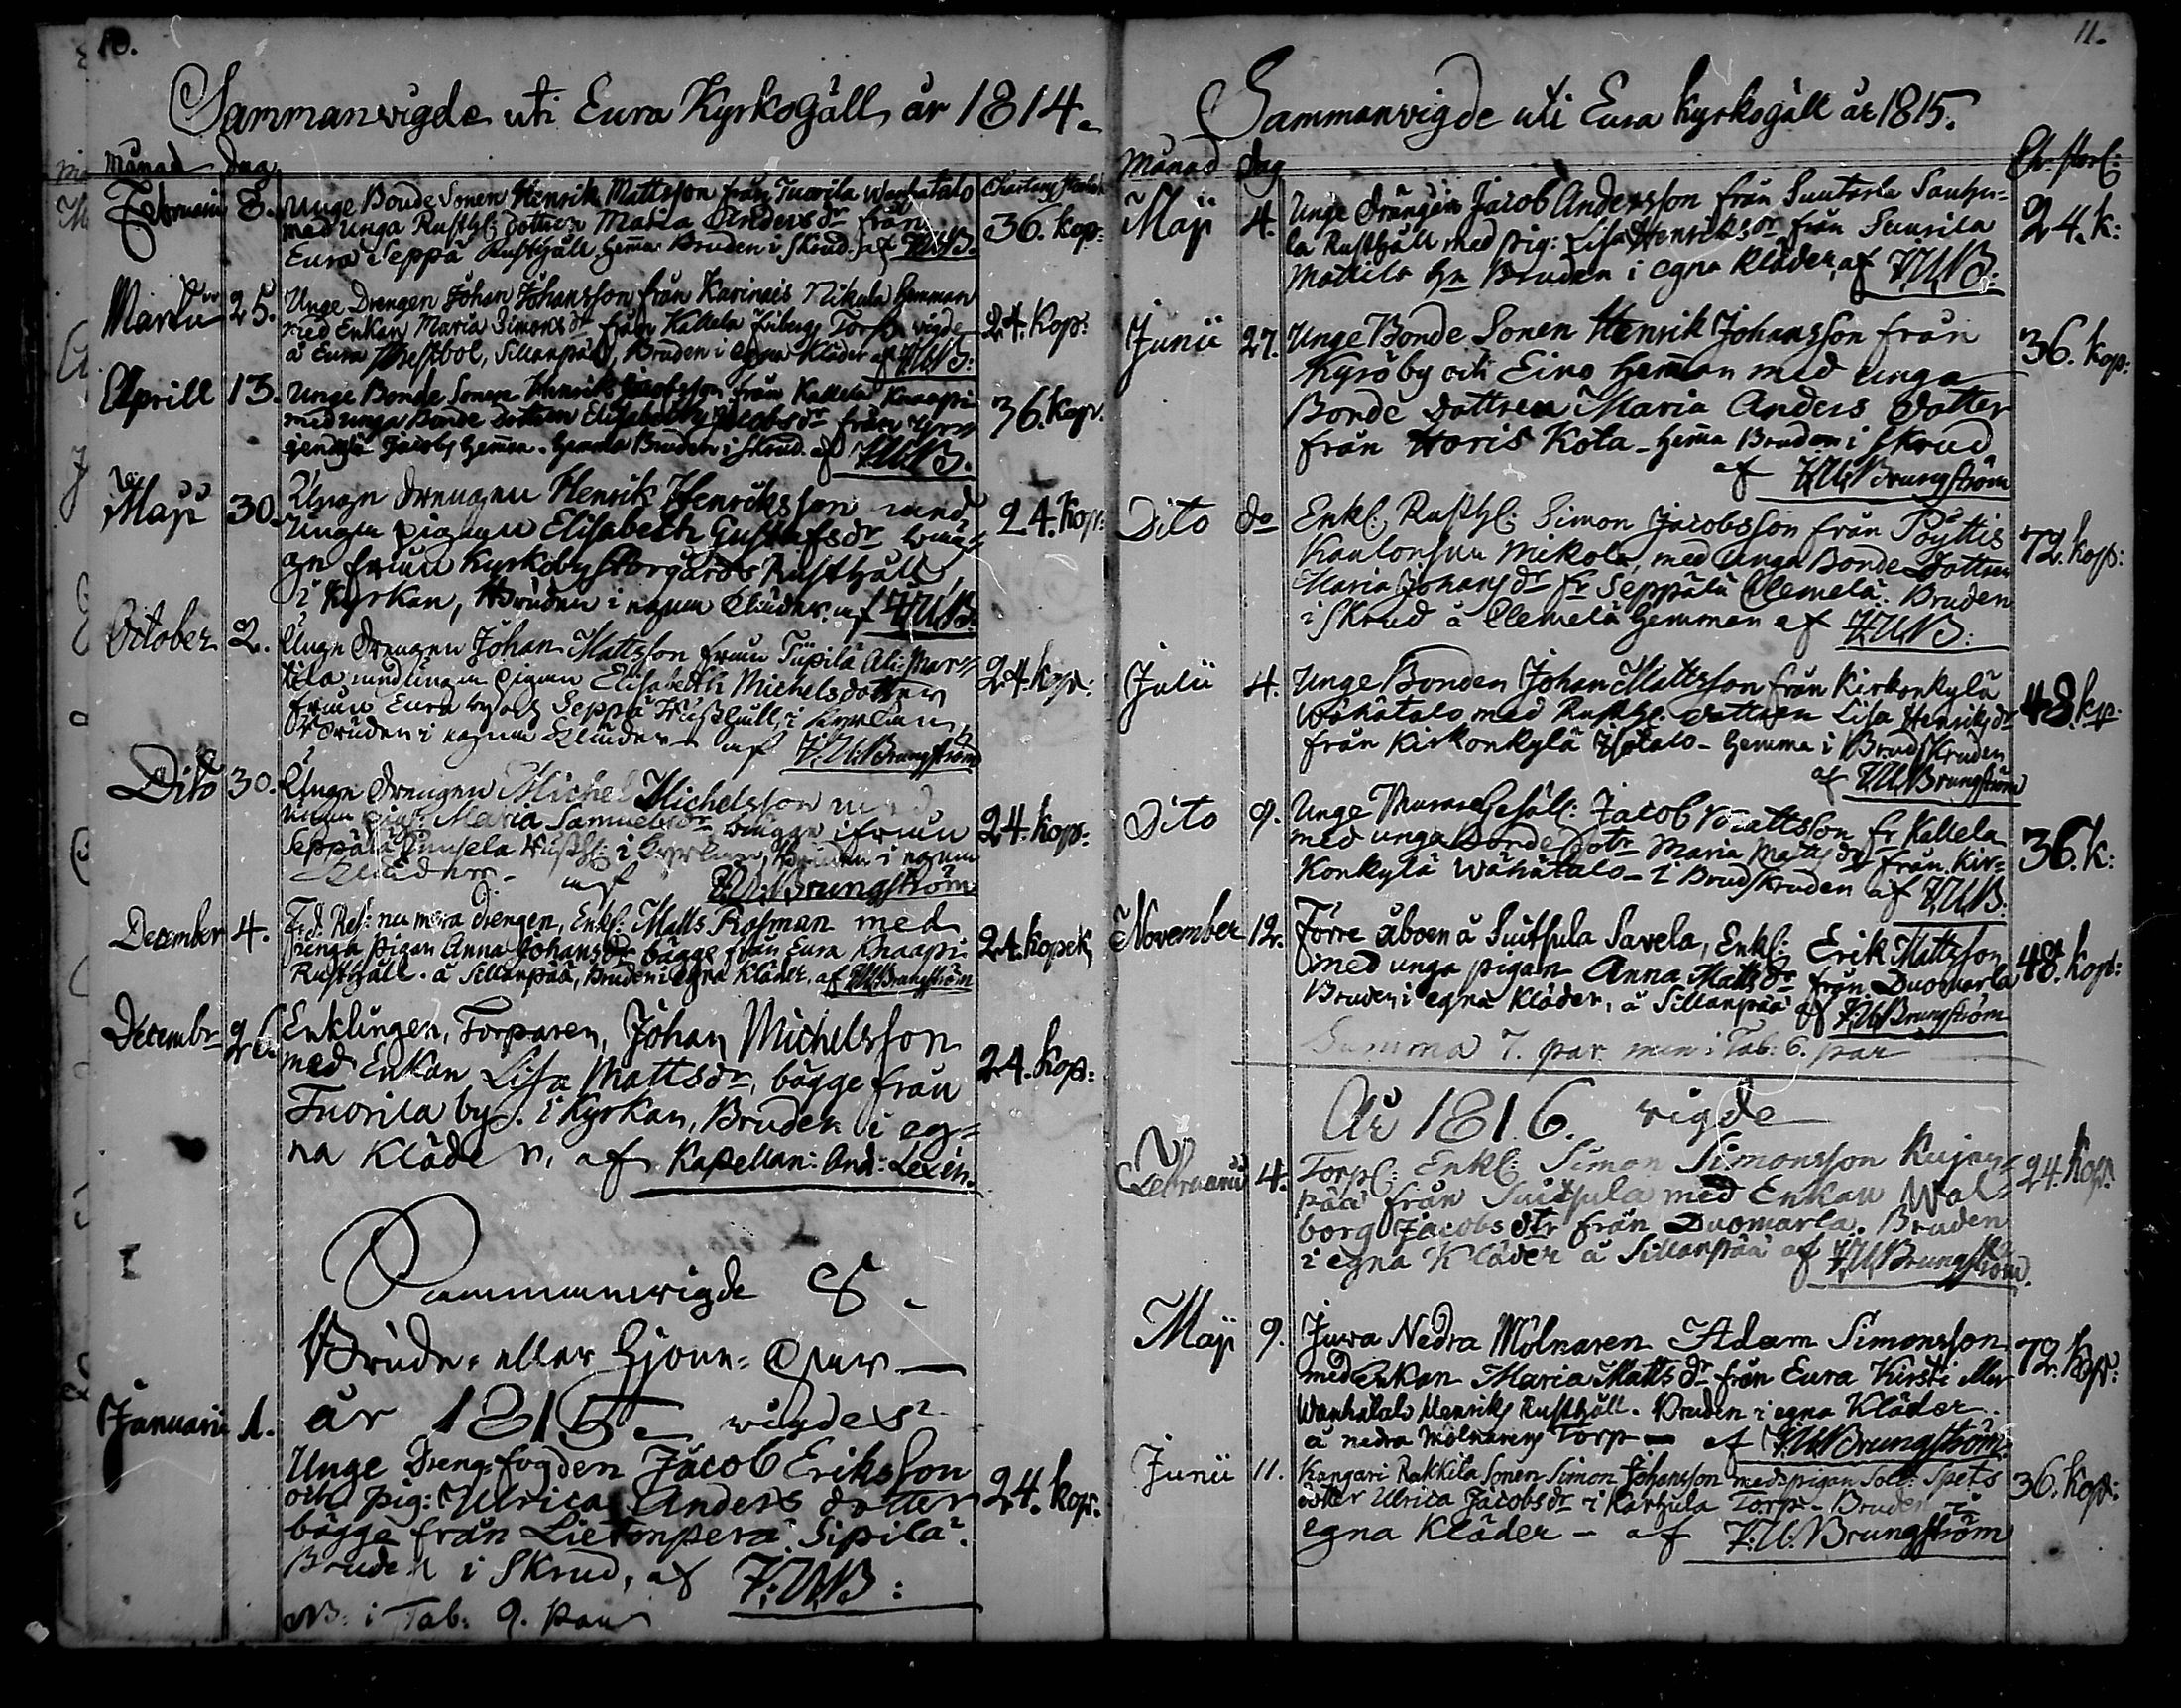 10.
Sammanvigde uti Eura Kyrkogäll år 1814.
Månad dag
Februarii 8. Unge Bonde Sonen Henrik Mattsson från Tuorila Wanhatalo
med unga Rusth: dottren Maria Andersdr från
Eura Seppä Rusthåll hemma Bruden i Skrud. af F:U:B. 36. kop:
Martii 25. Unge Drengen Johan Johansson från Karinais Nikula Hemman
med Enkan Maria Simonsdr från Kallela Torp. vigde
å Eura Prestbol, Sillanpää, Bruden i egna Kläder af F:U:B: 24. kop:
Aprill 13. Unge Bonde Sonen Henrik Jacobsson från Kallela Knaapi
med unga Bonde dottren Elisabeth Jacobsdr från
Jacobs hemman. hemma Bruden i Skrud. af F:U:B. 36. kop.
Maji 30. Unge drengen Henrik Henriksson med
unga pigan Elisabeth Gustafsdr bägge
från Kyrkoby Storgårds Rusthåll
i Kyrkan, Bruden i egna Kläder af F:U:B. 24. kop:
October 2. Unge drengen Johan Mattsson från Tüpilä Ali-Mart
tila med unga pigan Elisabeth Michelsdotter
från Eura by och Seppä Rusthåll, i Kyrkan
Bruden i egna Kläder af F.U.Brungström 24. kop:
Dito 30. Unge drengen Michel Michelsson med
unga pig: Maria Samuelsdr bägge ifrån
Seppälä Rusth: i Kyrkan, Bruden i egna
Kläder. af F.U.Brungström 24. kop:
December 4. F.d. Res: numera drengen, Enkl: Matts Rosman med
unga pigan Anna Johansdr bägge från Eura Knaapi
Rusthåll. å Sillanpää, Bruden i egna Kläder. af F.U.Brungström 24. kopek
Decembr Enklingen, Torparen, Johan Michelsson
med Enkan Lisa Mattsdr, bägge från
Tuorila by. i Kyrkan, Bruden i eg=
na Kläder, af Kapellan: And: Lexén. 24. kop:
Sammanvigde
Brude= eller Hjone= Par
år 1815 vigdes
Januarii 1. Unge Dreng-fogden Jacob Eriksson
och pig: Ulrica Anders dotter
bägge från Lietonperä Sipilä.
Bruden i Skrud, af F:U:B: 24. kop.
NB: i Tab: 9. par
11.
Sammanvigde uti Eura Kyrkogäll år 1815.
Månad dag
Maji 4. Unge Drängen Jacob Andersson från Suutarla Sauhu=
la Rusthåll med pig: Lisa Henriksdr från Suurila
Mattila hn Bruden i egna Kläder, af F.U.B: 24. k:
Junii 27. Unge Bonde Sonen Henrik Johansson från
Kyröby och Eino hemman med unga
Bonde dottren Maria Anders dotter
från Horis Kota. hemma Bruden i Skrud
af F.U.Brungström 36. kop:
Dito do Enkl: Rusth: Simon Jacobsson från Pöyttis
Mikola, med unga Bonde Dottren
Maria Johansdr fr Seppälä Clemelä. Bruden
i Skrud å Clemelä hemman af F.U.B: 72. kop:
Julii 4. Unge Bonden Johan Mattsson från Kirkonkylä
Wähätalo med Rusth: dottren Lisa Henriksdr
från Kirkonkylä Isotalo. hemma i Brudskruden
af F.U.Brungström 48. kp.
Dito 9. Unge Murare Gesäll: Jacob Mattsson fr Kallela
med unga Bonde dotr Maria Mattsdr från Kir=
konkylä Wähätalo. i Brudskruden af F.U.B. 36. k:
November 12. Förre åboen å Suitsula Savela, Enkl: Erik Mattsson
med unga pigan Anna Mattsdr från Duomarla
Bruden i egna Kläder, å Sillanpää af F.U.Brungström 48. kop:
Summa 7. par men i Tab: 6. par
År 1816. vigde
Februarii 4. Torp: Enkl: Simon Simonsson Kujan=
pää från Suitsula med Enkan Wal=
borg Jacobs dtr från Duomarla. Bruden
i egna Kläder å Sillanpää af F.U.Brungström. 24. kop.
Maji 9. Juva Nedra Mölnaren Adam Simonsson
med Enkan Maria Mattsdr från Eura Kirsti eller
Wanhatalo Henriks Rusthåll. Bruden i egna Kläder.
å nedra Mölnarens Torp — af F.U.Brungström. 72. kop:
Junii 11. Kangari Rakkila Sonen Simon Johansson med pigan Sold: Spets
dotter Ulrica Jacobsdr i Karhula Torp. Bruden i
egna Kläder — af F.U.Brungström 36. kop: